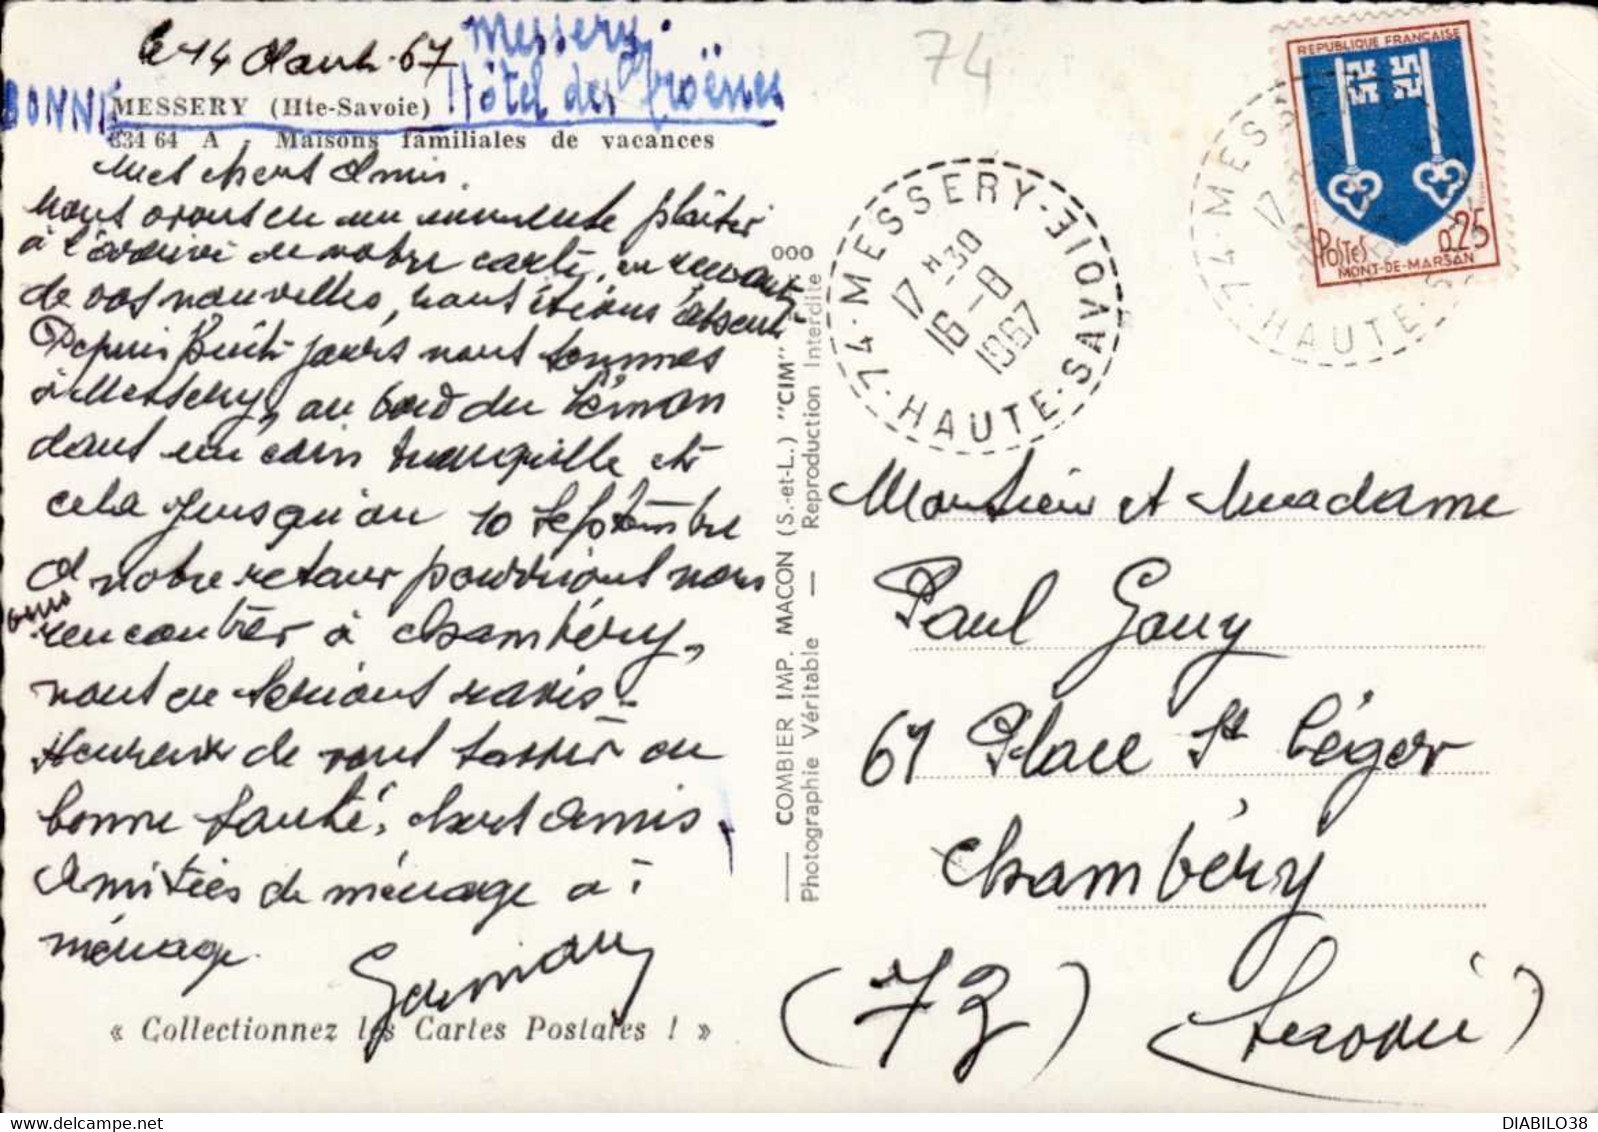 le 14 Aout. 67
Messery
Hôtel des Troënes
BONNE
MESSERY (Hte-Savoie)
834 64 A Maisons familiales de vacances
Mes chers Amis.
nous avons eu un immense plaisir
à l'arrivé de notre carte, en recevant
de vos nouvelles, nous étions absent
Depuis huit jours nous sommes
à Messery, au bord du Léman
dans un coin tranquille et
cela jusqu'au 10 Septembre
A notre retour pourrions nous
vous
rencontrer à Chambéry,
nous en serions ravis.
Heureux de vous savoir en
bonne santé, chers Amis
Amitiés de ménage à
ménage.
« Collectionnez les Cartes Postales ! »
COMBIER IMP. MACON (S.-et-L.) "CIM"
Photographie Véritable — Reproduction Interdite
000
74
74-MESSERY-HAUTE-SAVOIE
17 H 30
16-8
1967
REPUBLIQUE FRANÇAISE
POSTES
0,25
MONT-DE-MARSAN
74-MES
HAUTE-S
17
Monsieur et Madame
Paul Gouy
61 Place St Léger
Chambéry
(73) (Savoie)
DIABILO38